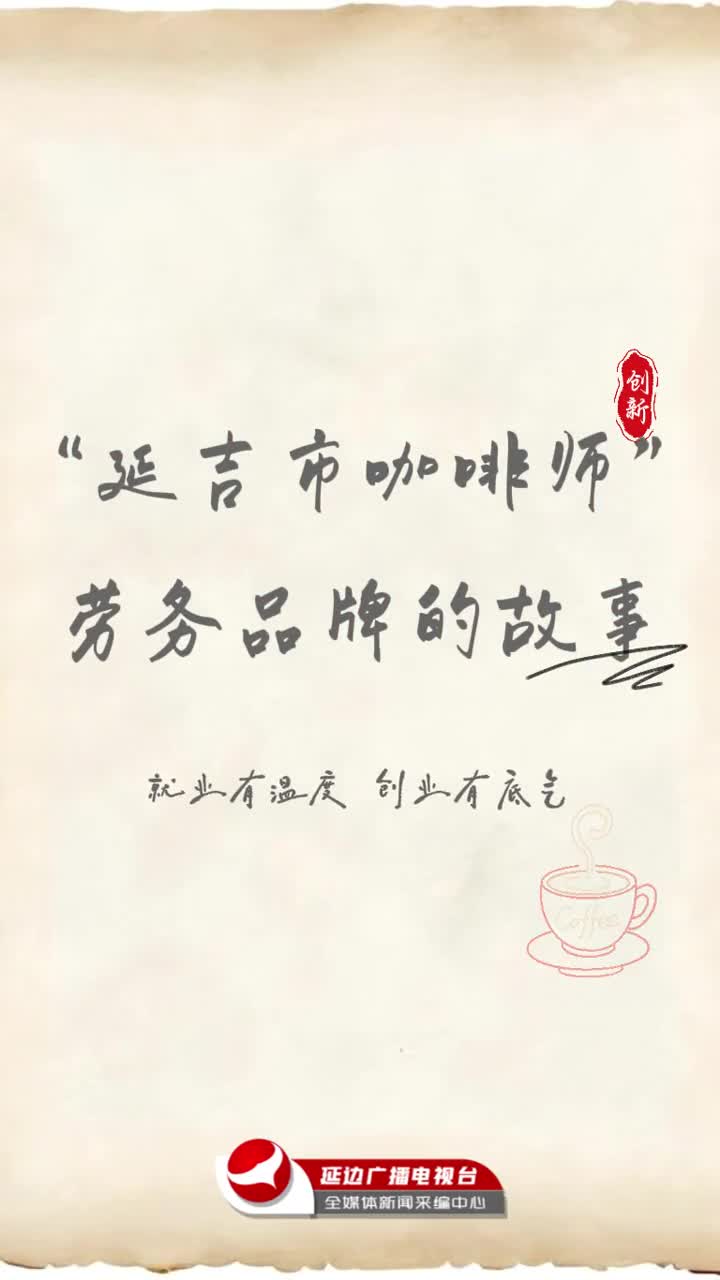 创新
“延吉市咖啡师”
劳务品牌的故事
就业有温度 创业有底气
Coffee
延边广播电视台
全媒体新闻采编中心